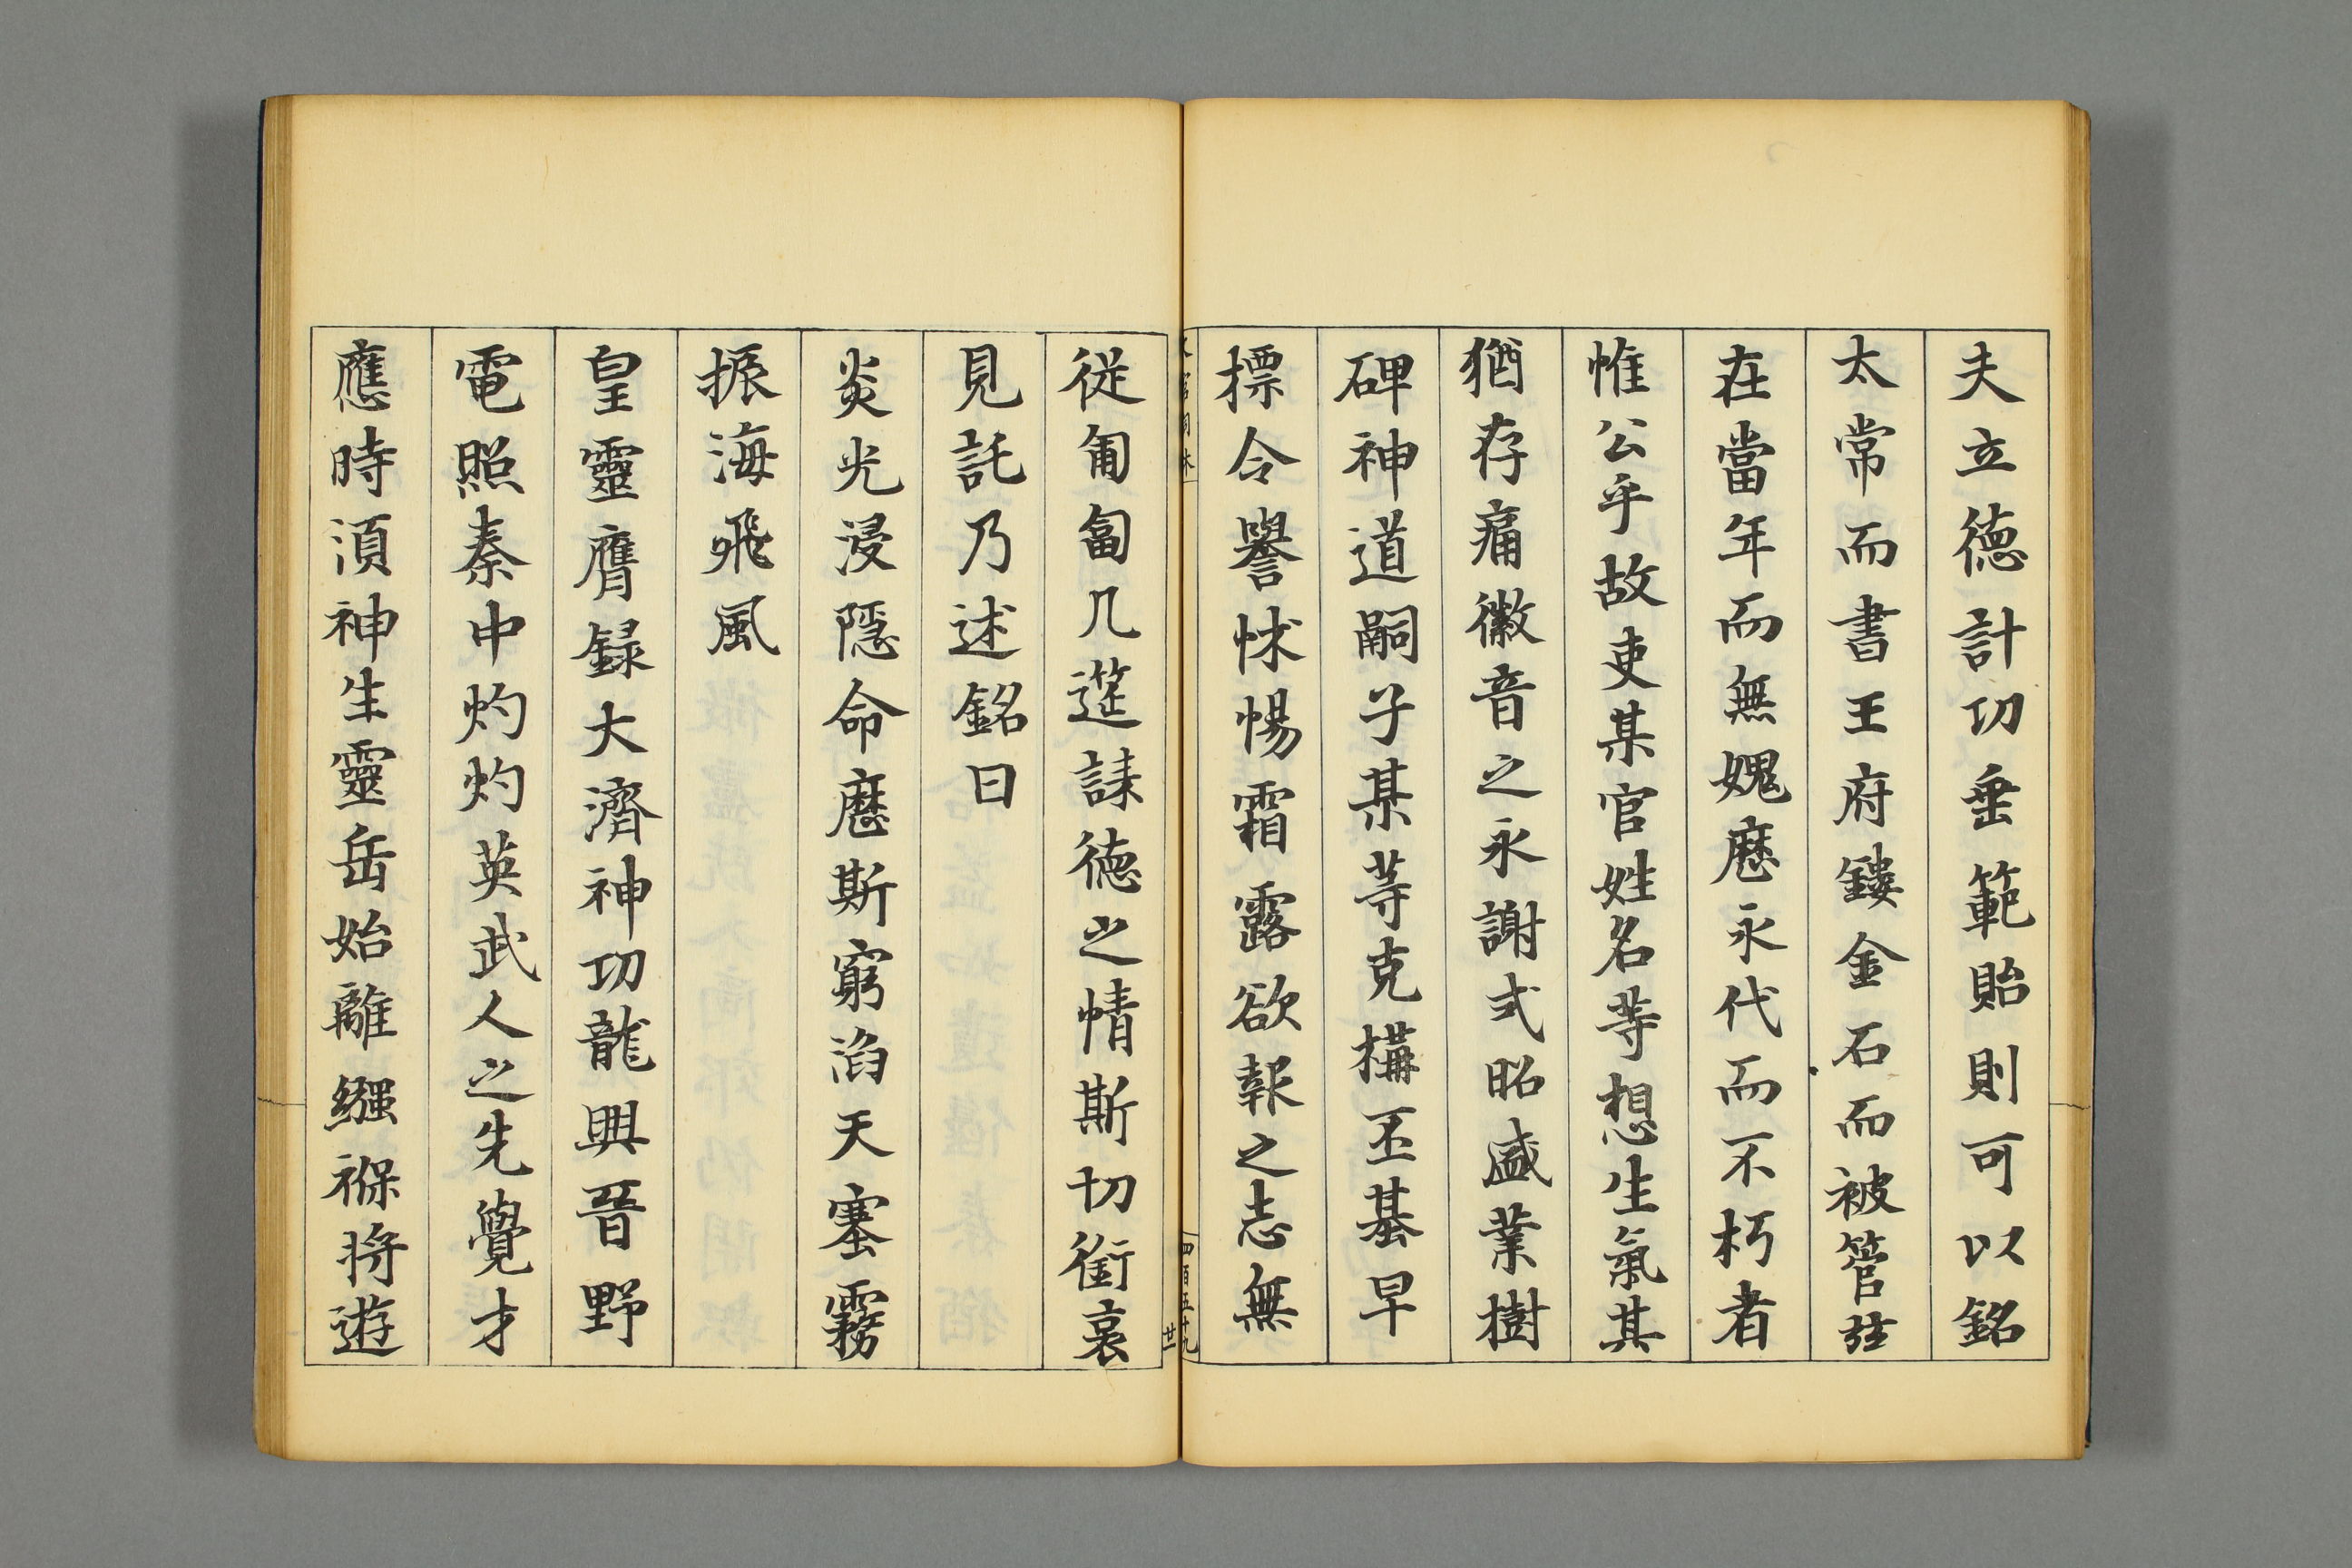 夫立徳計功垂範貽則可以銘
太常而書王府鏤金石而被管弦
在當年而無媿歴永代而不朽者
惟公乎故吏某官姓名等想生氣其
猶存痛徽音之永謝式昭盛業樹
碑神道嗣子某等克構丕基早
標令譽怵惕霜露欲報之志無
四百五十九
従匍匐几筵誄徳之情斯切銜哀
見託乃述銘曰
炎光浸隠命歴斯窮滔天塞霧
振海飛風
皇靈膺録大濟神功龍興晉野
電照秦中灼灼英武人之先覺才
應時湏神生靈岳始離繦褓将遊